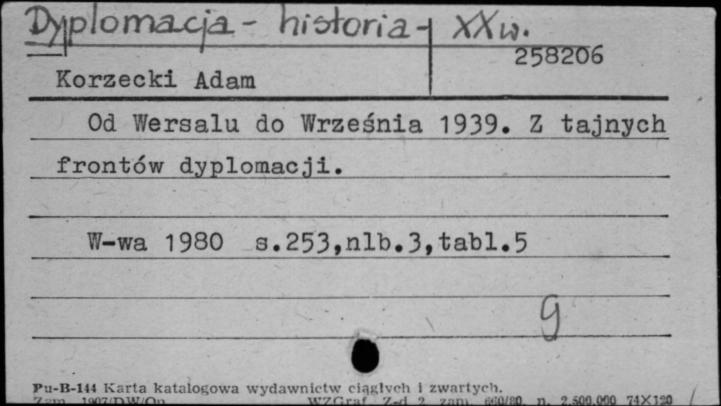 Dyplomacja - historia - XXw.
258206
Korzecki Adam
Od Wersalu do Września 1939. Z tajnych
frontów dyplomacji.
W-wa 1980 s.253,nlb.3,tabl.5
g
Pu-B-144 Karta katalogowa wydawnictw ciągłych i zwartych.
Zam. 1907/DW/Op WZGraf. Z-d 2 zam. 660/80 n. 2.500.000 74X120